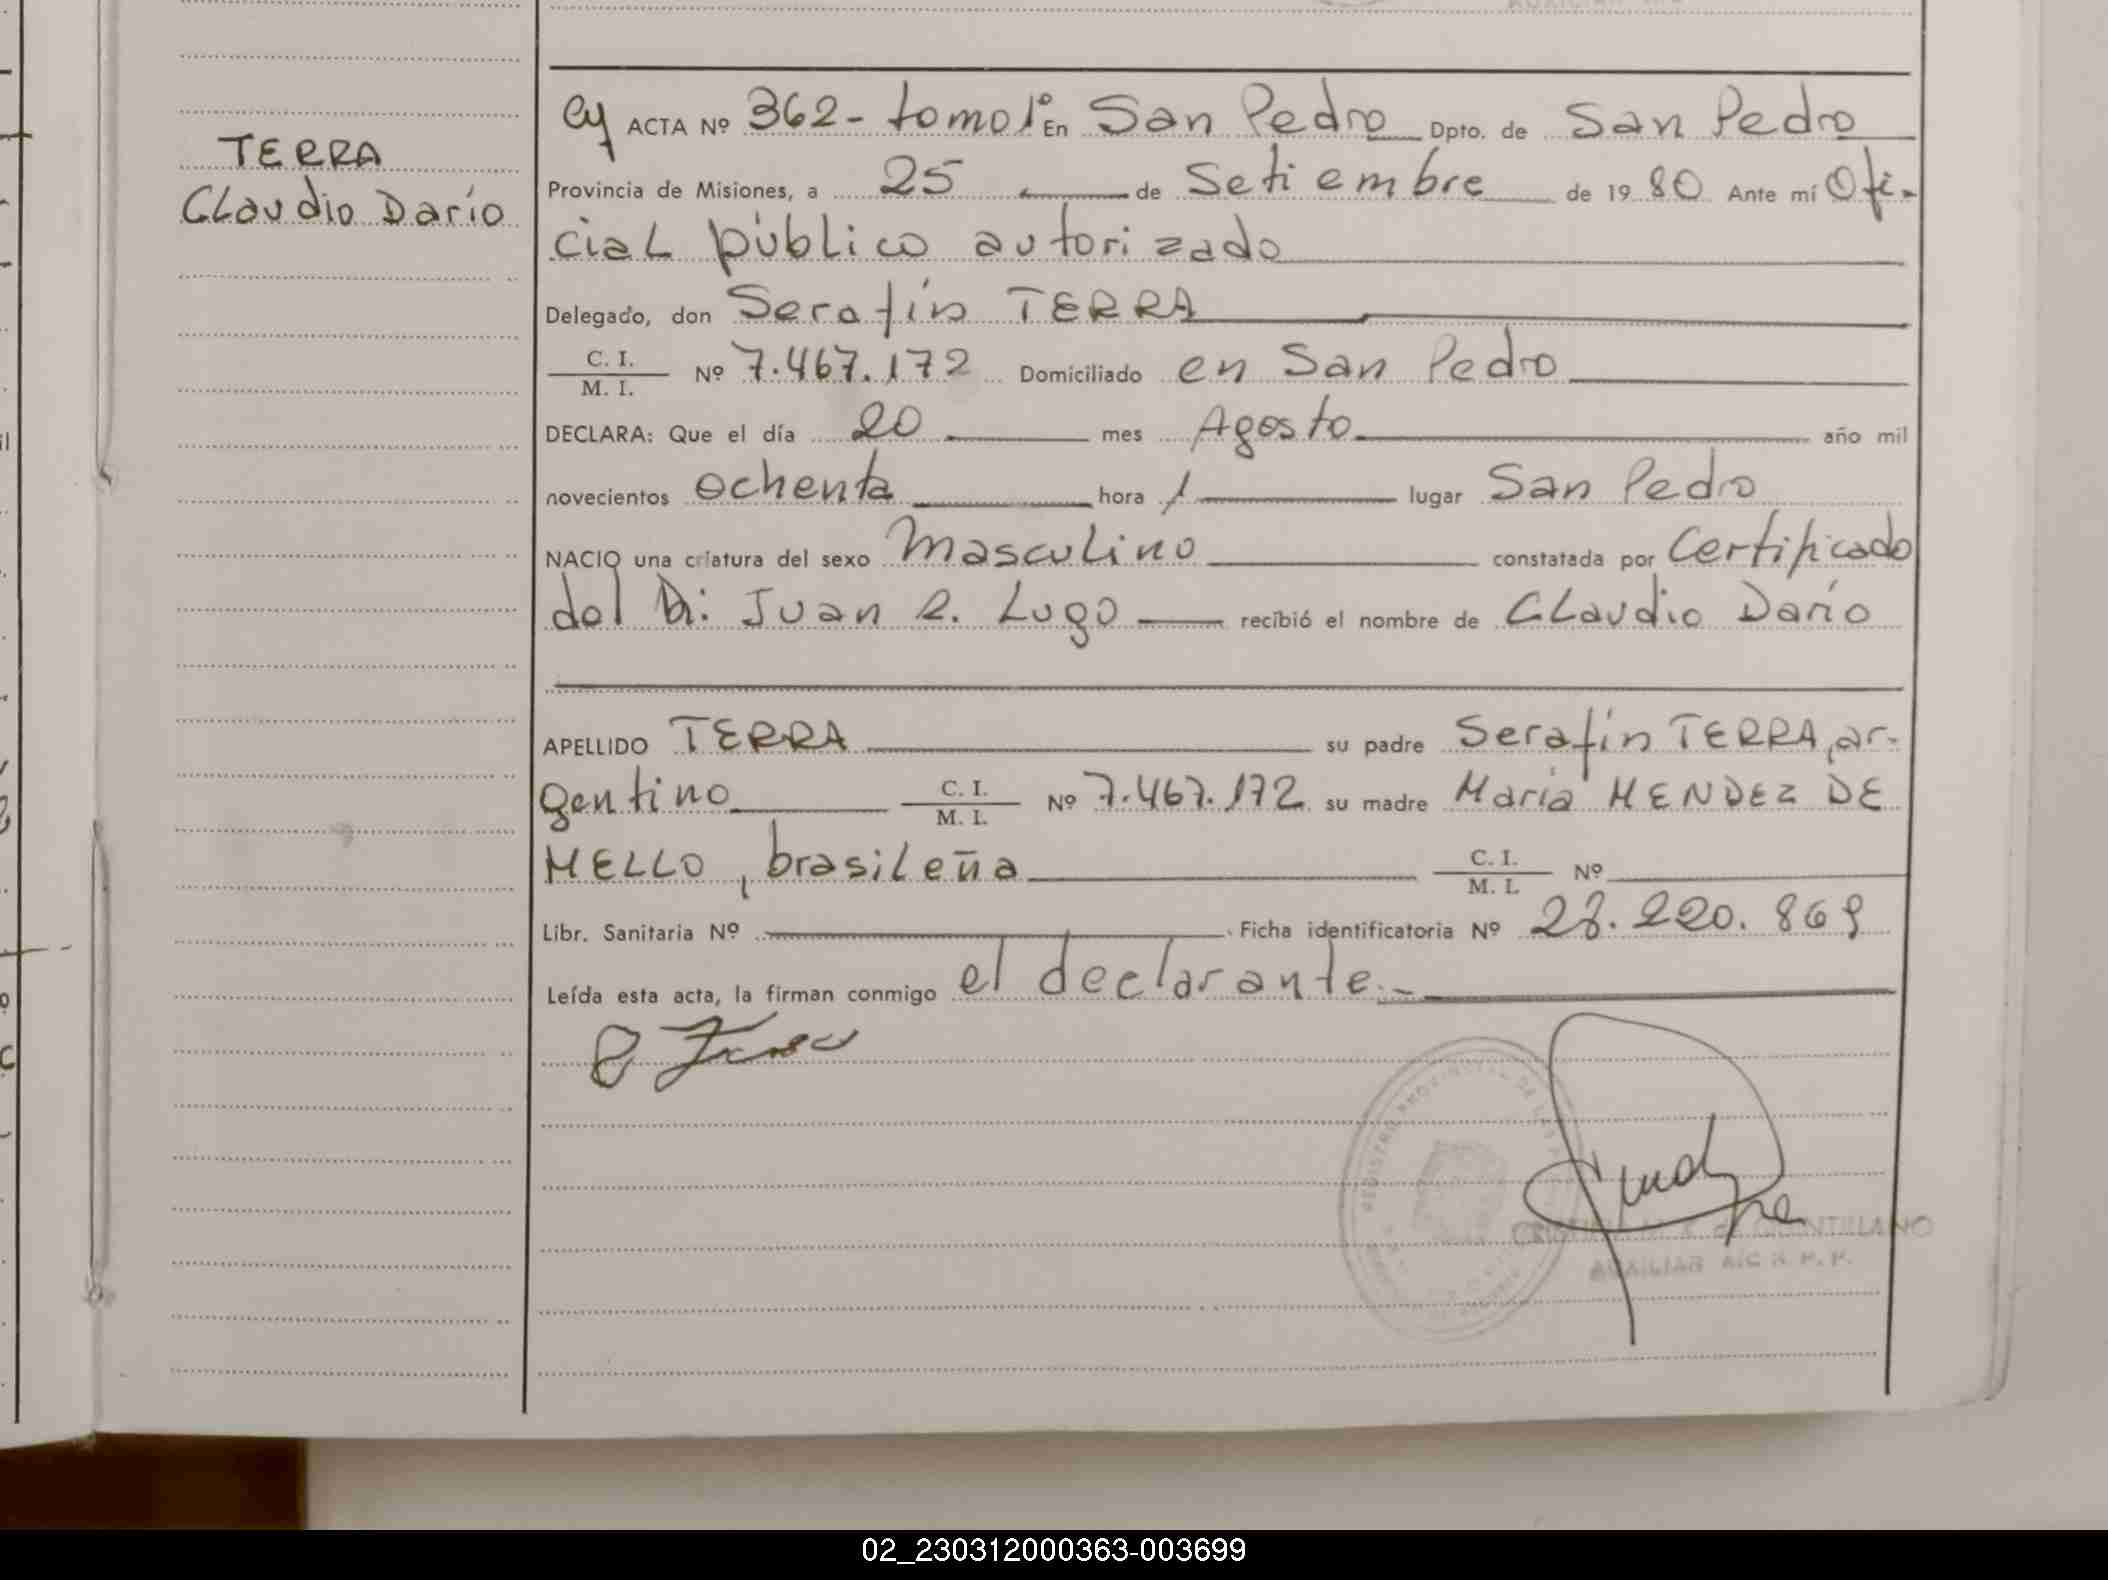 TERRA
Claudio Darío
ACTA Nº 362- tomo 1º En San Pedro Dpto. de San Pedro
Provincia de Misiones, a 25 de Setiembre de 1980 Ante mí Ofi-
cial público autorizado
Delegado, don Serafín TERRA
C. I.
M. I.
Nº 7.467.172 Domiciliado en San Pedro
DECLARA: Que el día 20 mes Agosto año mil
novecientos ochenta hora 1 lugar San Pedro
NACIO una criatura del sexo Masculino constatada por Certificado
del Dr. Juan R. Lugo recibió el nombre de Claudio Darío
APELLIDO TERRA su padre Serafín TERRA, ar-
gentino C. I. M. I. Nº 7.467.172 su madre María MENDEZ DE
MELLO, brasileña C. I. M. I. Nº
Libr. Sanitaria Nº Ficha identificatoria Nº 28.220.869
Leída esta acta, la firman conmigo el declarante.-
QUINTILLANO
AUXILIAR
02_230312000363-003699